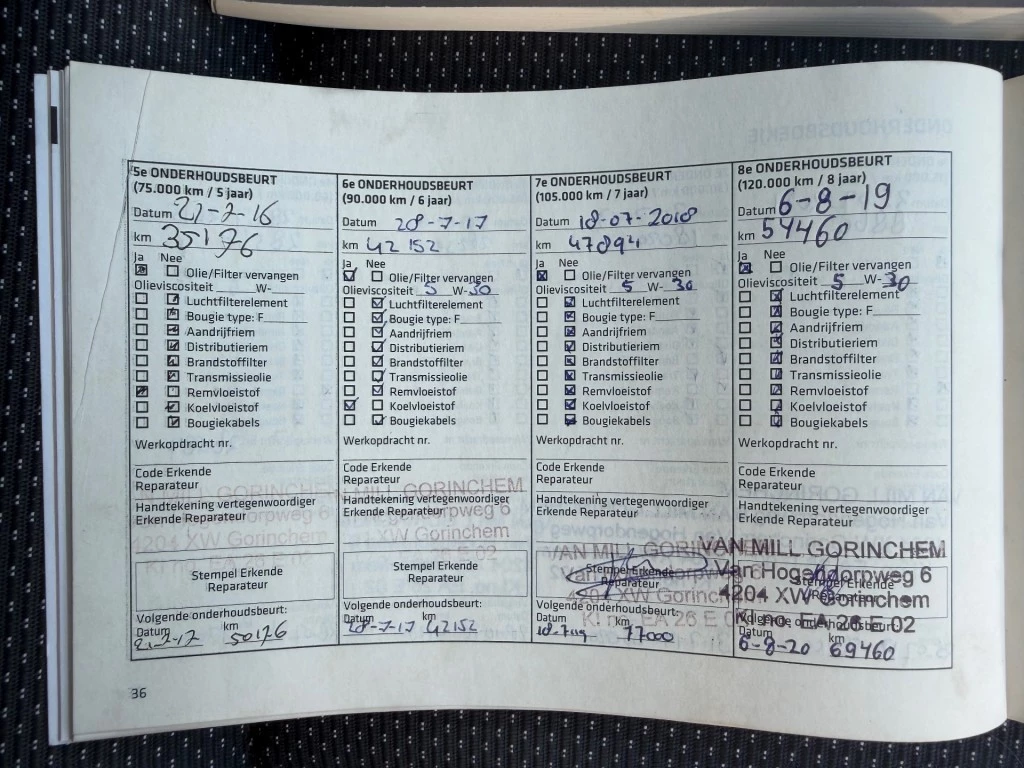 5e ONDERHOUDSBEURT
(75.000 km / 5 jaar)
Datum
km 35176
Ja Nee
Olie/Filter vervangen
Olieviscositeit W-
Luchtfilterelement
Bougie type: F
Aandrijfriem
Distributieriem
Brandstoffilter
Transmissieolie
Remvloeistof
Koelvloeistof
Bougiekabels
Werkopdracht nr.
Code Erkende
Reparateur
Handtekening vertegenwoordiger
Erkende Reparateur
4204 XW Gorinchem
Stempel Erkende
Reparateur
Volgende onderhoudsbeurt:
Datum km
50176
6e ONDERHOUDSBEURT
(90.000 km / 6 jaar)
Datum 28-7-17
km 42152
Ja Nee
Olie/Filter vervangen
Olieviscositeit 5 W-30
Luchtfilterelement
Bougie type: F
Aandrijfriem
Distributieriem
Brandstoffilter
Transmissieolie
Remvloeistof
Koelvloeistof
Bougiekabels
Werkopdracht nr.
Code Erkende
Reparateur
MILL GORINCHEM
Handtekening vertegenwoordiger
Erkende Reparateur
XW Gorinchem
Stempel Erkende
Reparateur
Volgende onderhoudsbeurt:
Datum km
28-7-17 42152
7e ONDERHOUDSBEURT
(105.000 km / 7 jaar)
Datum 18-07-2018
km 47894
Ja Nee
Olie/Filter vervangen
Olieviscositeit 5 W-30
Luchtfilterelement
Bougie type: F
Aandrijfriem
Distributieriem
Brandstoffilter
Transmissieolie
Remvloeistof
Koelvloeistof
Bougiekabels
Werkopdracht nr.
Code Erkende
Reparateur
Handtekening vertegenwoordiger
Erkende Reparateur
VAN MILL
Stempel Erkende
Reparateur
Volgende onderhoudsbeurt:
Datum km
77000
8e ONDERHOUDSBEURT
(120.000 km / 8 jaar)
Datum 6-8-19
km 54460
Ja Nee
Olie/Filter vervangen
Olieviscositeit 5 W-30
Luchtfilterelement
Bougie type: F
Aandrijfriem
Distributieriem
Brandstoffilter
Transmissieolie
Remvloeistof
Koelvloeistof
Bougiekabels
Werkopdracht nr.
Code Erkende
Reparateur
Handtekening vertegenwoordiger
Erkende Reparateur
VAN MILL GORINCHEM
Van Hogendorpweg 6
Stempel Erkende
Reparateur
4204 XW Gorinchem
KI no. EA 26 E 02
Volgende onderhoudsbeurt:
Datum km
6-8-20 69460
36